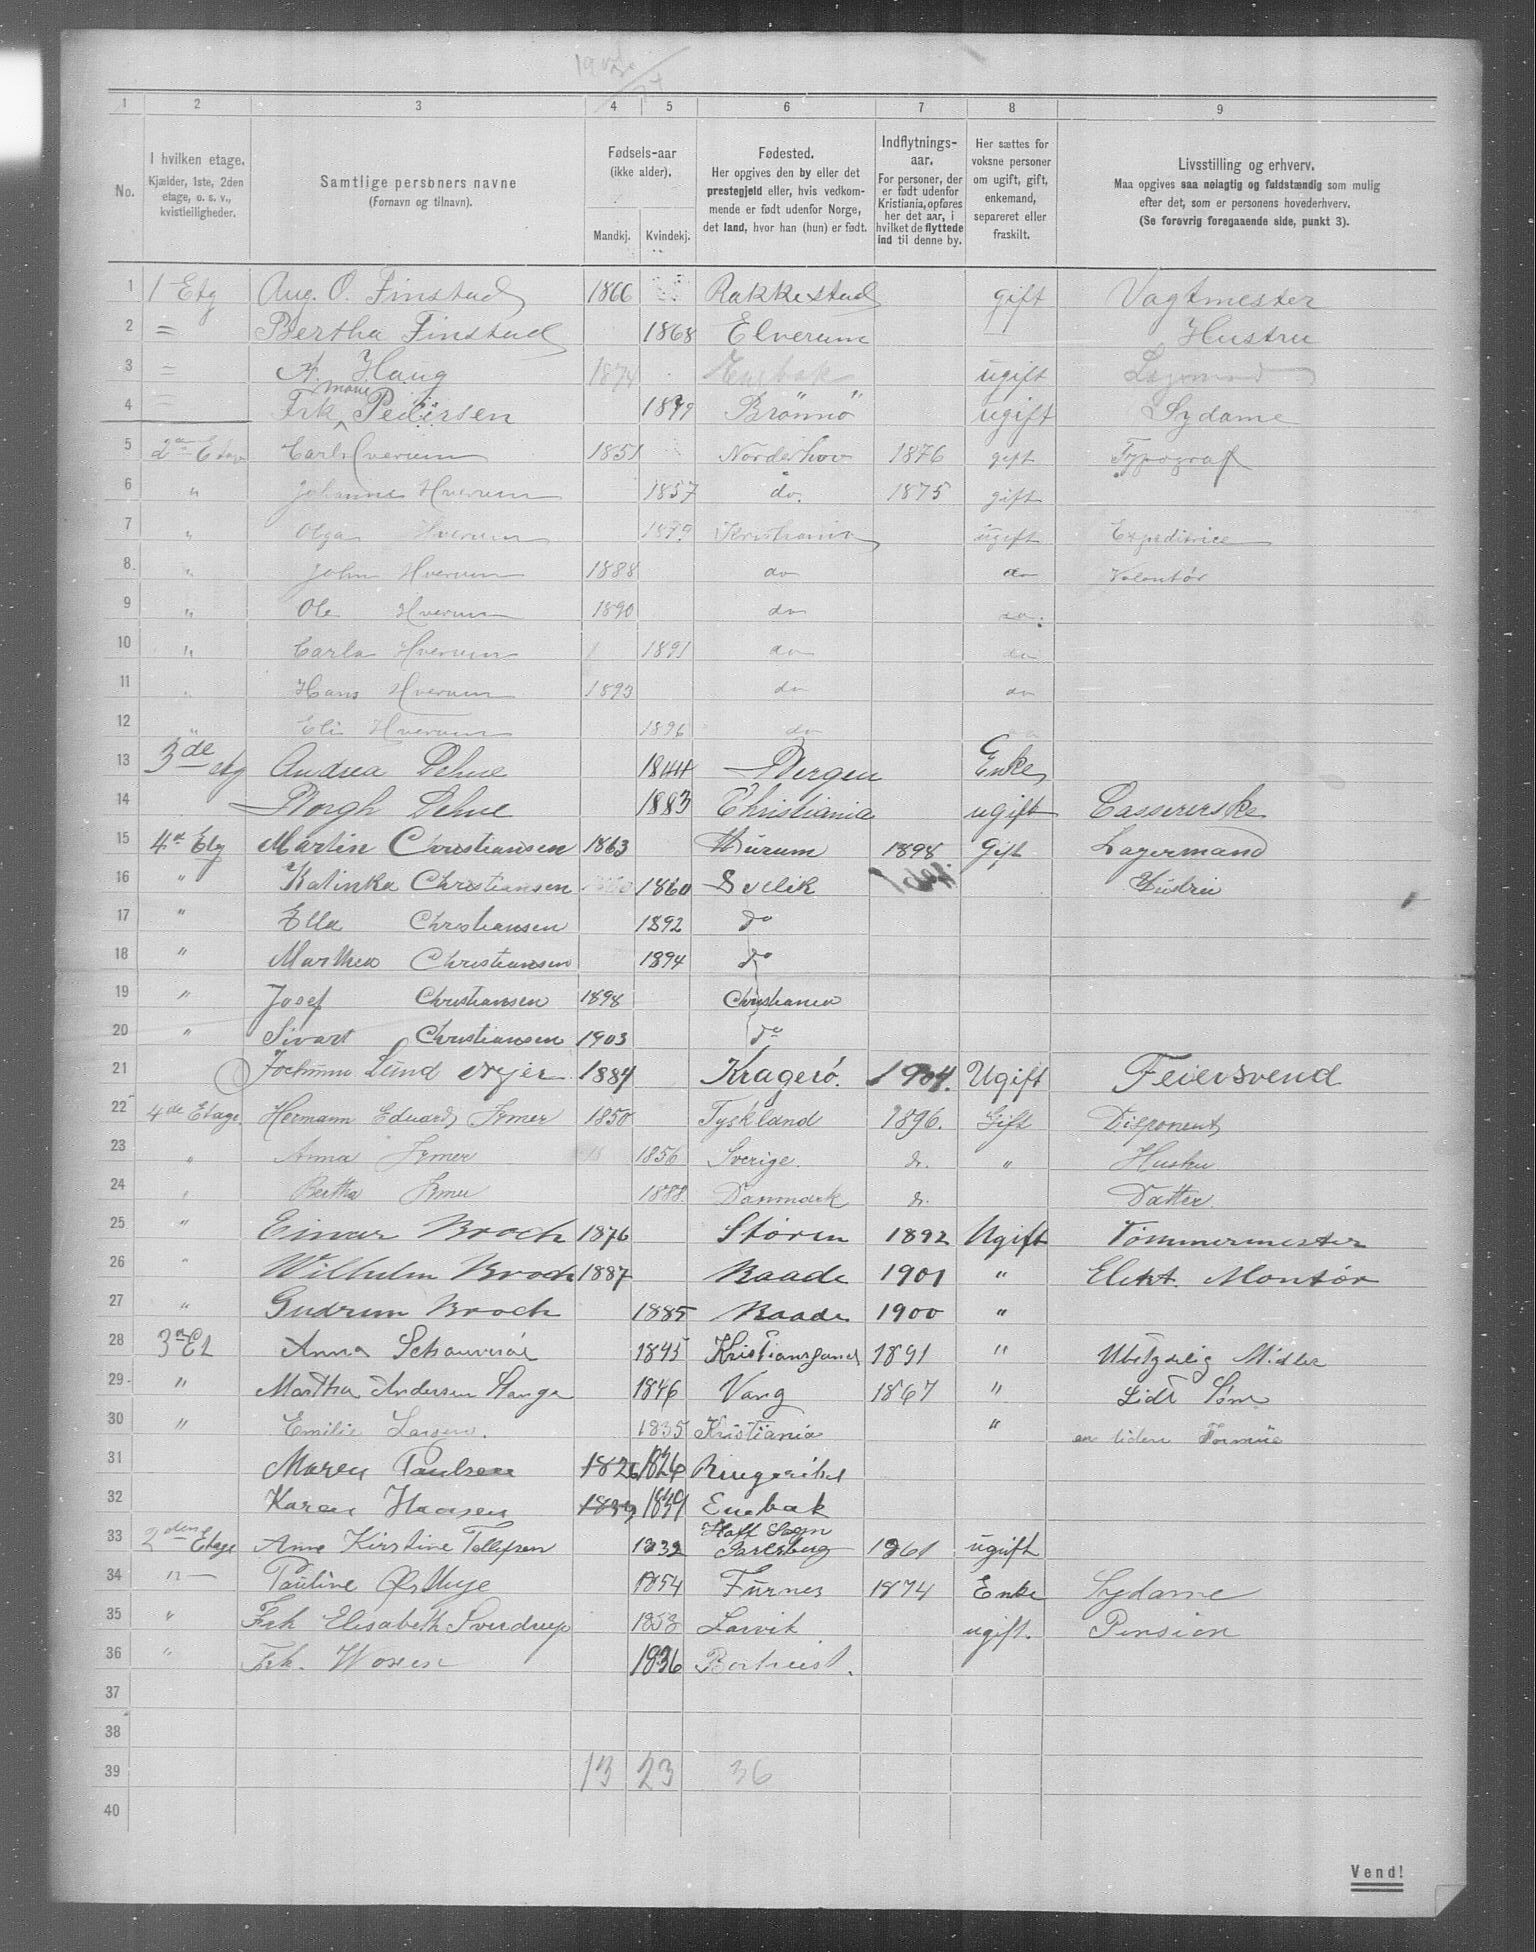 1 2 3 4 5 6 7 8 9
No.
I hvilken etage.
Kjælder, 1ste, 2den
etage, o. s. v.,
kvistleiligheder.
Samtlige personers navne
(Fornavn og tilnavn).
Fødsels-aar
(ikke alder).
Mandkj. Kvindekj.
Fødested.
Her opgives den by eller det
prestegjeld eller, hvis vedkom-
mende er født udenfor Norge,
det land, hvor han (hun) er født.
Indflytnings-
aar.
For personer, der
er født udenfor
Kristiania, opføres
her det aar, i
hvilket de flyttede
ind til denne by.
Her sættes for
voksne personer
om ugift, gift,
enkemand,
separeret eller
fraskilt.
Livsstilling og erhverv.
Maa opgives saa nøiagtig og fuldstændig som mulig
efter det, som er personens hovederhverv.
(Se forøvrig foregaaende side, punkt 3).
1 1 Etg Aug. O. Finstad 1866 Rakkestad gift Vagtmester
2 = Bertha Finstad 1868 Elverum Hustru
3 = A. Haug 1874 Enebak ugift
4 = Frk Marie Pedersen 1879 Brönnö ugift Sydame
5 2den Etage Carl Hverum 1851 Norderhov 1876 gift Typograf
6 " Johanne Hverum 1857 do. 1875 gift
7 " Olga Hverum 1879 Kristiania ugift Expeditrice
8 " John Hverum 1888 do do Volontør
9 " Ole Hverum 1890 do do.
10 " Carla Hverum 1891 do do
11 " Hans Hverum 1893 do do
12 " Eli Hverum 1896 do
13 3de etg Andrea Dehue 1844 Bergen Enke
14 Borgh Dehue 1883 Christiania ugift Cassererske
15 4de Etg Martin Christiansen 1863 Hurum 1898 Gift Lagermand
16 " Katinka Christiansen 1860 Svelik Hustru
17 " Ella Christiansen 1892 do
18 " Marthea Christiansen 1894 do
19 " Josef Christiansen 1898 Christiania
20 " Sivart Christiansen 1903 do
21 Jochum Lund 1884 Kragerö. 1904. Ugift Feiersvend
22 4de Etage Hermann Eduard Irmer 1850 Tyskland 1896. Gift Disponent
23 " Anna Irmer 1856 Sverige. do. " Hustru
24 " Bertha Irmer 1888. Danmark do. Datter.
25 " Einar Broch 1876 Støren 1892 Ugift Tømmermester
26 " Wilhelm Broch 1887 Raade 1901 " Elekt. Montør
27 " Gudrun Broch 1885 Raade 1900 "
28 3de Et Anna 1845 Kristiansand 1891 " Ubetydelig Midler
29 " Martha Andersen Stange 1846 Vang 1867 " Lidt Søm
30 " Emilie Larsen. 1835 Kristiania " en liden Formue
31 Maren Paulsen 1826 1826 Ringerike
32 Karen Hansen 1839 Enebak
33 2den Etage Anne Kirstine Tollefsen 1832 Hoff Sogn Jarlsberg 1861 ugift
34 " Pauline Østhye 1854 Furnes 1874 Enke Sydame
35 " Frk Elisabeth Sverdrup 1853 Larvik ugift. Pension
36 " Frk. Woxen 1836
37
38
39 13 23 36
40
Vend!